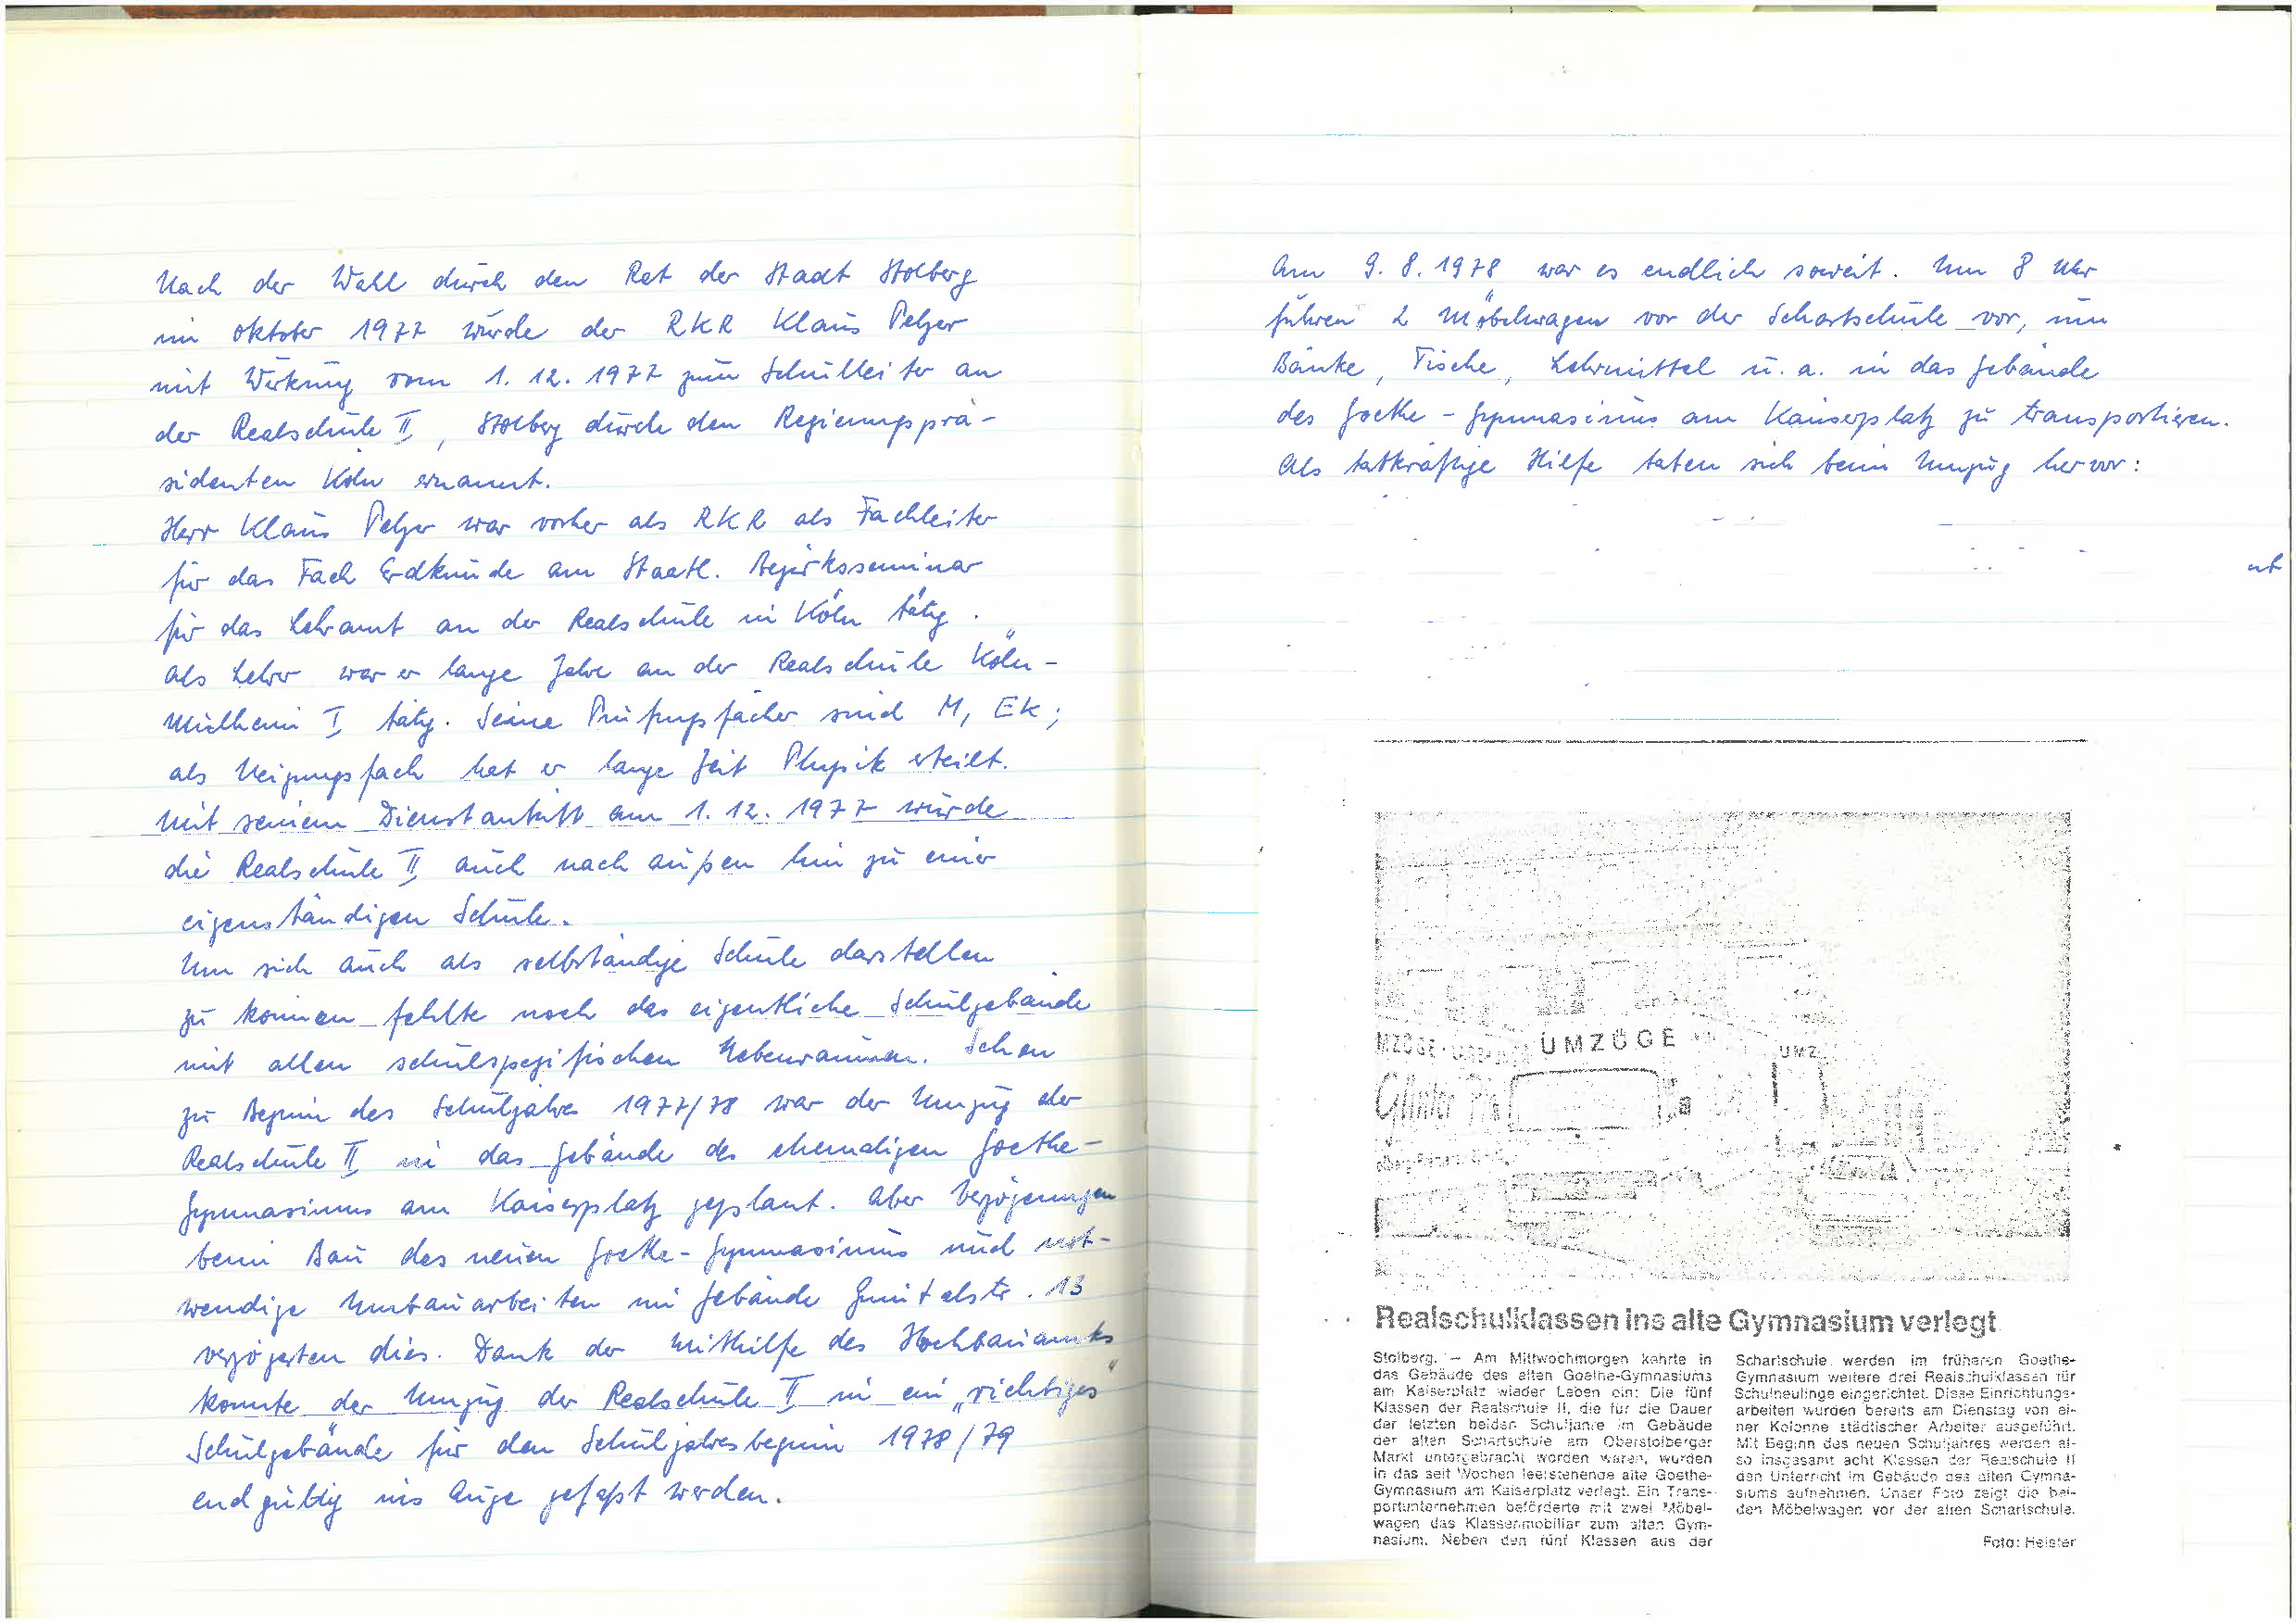 Nach der Wahl durch den Rat der Stadt Stolberg
im Oktober 1977 wurde der RKR Klaus Pelzer
mit Wirkung vom 1. 12. 1977 zum Schulleiter an
der Realschule II, Stolberg durch den Regierungsprä-
sidenten Köln ernannt.
Herr Klaus Pelzer war vorher als RKR als Fachleiter
für das Fach Erdkunde am Staatl. Bezirksseminar
für das Lehramt an der Realschule in Köln tätig.
Als Lehrer war er lange Jahre an der Realschule Köln-
Mülheim I tätig. Seine Prüfungsfächer sind M, EK;
als Neigungsfach hat er lange Zeit Physik erteilt.
Mit seinem Dienstantritt am 1. 12. 1977 wurde
die Realschule II auch nach außen hin zu einer
eigenständigen Schule.
Um sich auch als selbständige Schule darstellen
zu können fehlte noch das eigentliche Schulgebäude
mit allen schulspezifischen Nebenräumen. Schon
zu Beginn des Schuljahres 1977/78 war der Umzug der
Realschule II in das Gebäude des ehemaligen Goethe-
Gymnasiums am Kaiserplatz geplant. Aber Verzögerungen
beim Bau des neuen Goethe-Gymnasiums und not-
wendige Umbauarbeiten im Gebäude 13
verzögerten dies. Dank der Mithilfe des Hochbauamts
konnte der Umzug der Realschule II in ein „richtiges"
Schulgebäude für den Schuljahresbeginn 1978/79
endgültig ins Auge gefaßt werden.
Am 9. 8. 1978 war es endlich soweit. Um 8 Uhr
fuhren 2 Möbelwagen vor der Schartschule vor, um
Bänke, Tische, Lehrmittel u. a. in das Gebäude
des Goethe-Gymnasiums am Kaiserplatz zu transportieren.
Als tatkräftige Hilfe taten sich beim Umzug hervor:
MZÜGE UMZÜGE UMZ
Günter
Realschulklassen ins alte Gymnasium verlegt
Stolberg. – Am Mittwochmorgen kehrte in
das Gebäude des alten Goethe-Gymnasiums
am Kaiserplatz wieder Leben ein: Die fünf
Klassen der Realschule II, die für die Dauer
der letzten beiden Schuljahre im Gebäude
der alten Schartschule am Oberstolberger
Markt untergebracht worden waren, wurden
in das seit Wochen leerstehende alte Goethe-
Gymnasium am Kaiserplatz verlegt. Ein Trans-
portunternehmen beförderte mit zwei Möbel-
wagen das Klassenmobiliar zum alten Gym-
nasium. Neben den fünf Klassen aus der
Schartschule werden im früheren Goethe-
Gymnasium weitere drei Realschulklassen für
Schulneulinge eingerichtet. Diese Einrichtungs-
arbeiten wurden bereits am Dienstag von ei-
ner Kolonne städtischer Arbeiter ausgeführt.
Mit Beginn des neuen Schuljahres werden al-
so insgesamt acht Klassen der Realschule II
den Unterricht im Gebäude des alten Gymna-
siums aufnehmen. Unser Foto zeigt die bei-
den Möbelwagen vor der alten Schartschule.
Foto: Heister